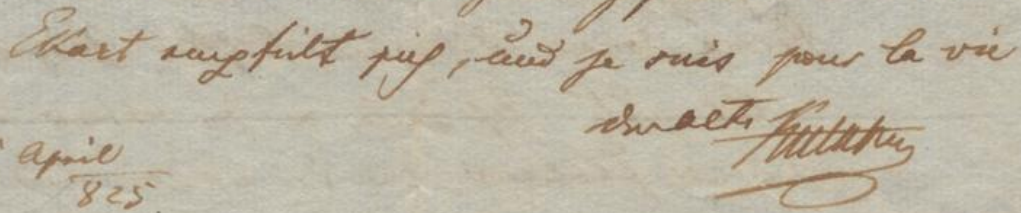 Ekart empfielt sich, und je suis pour la vie
der alte
April
825